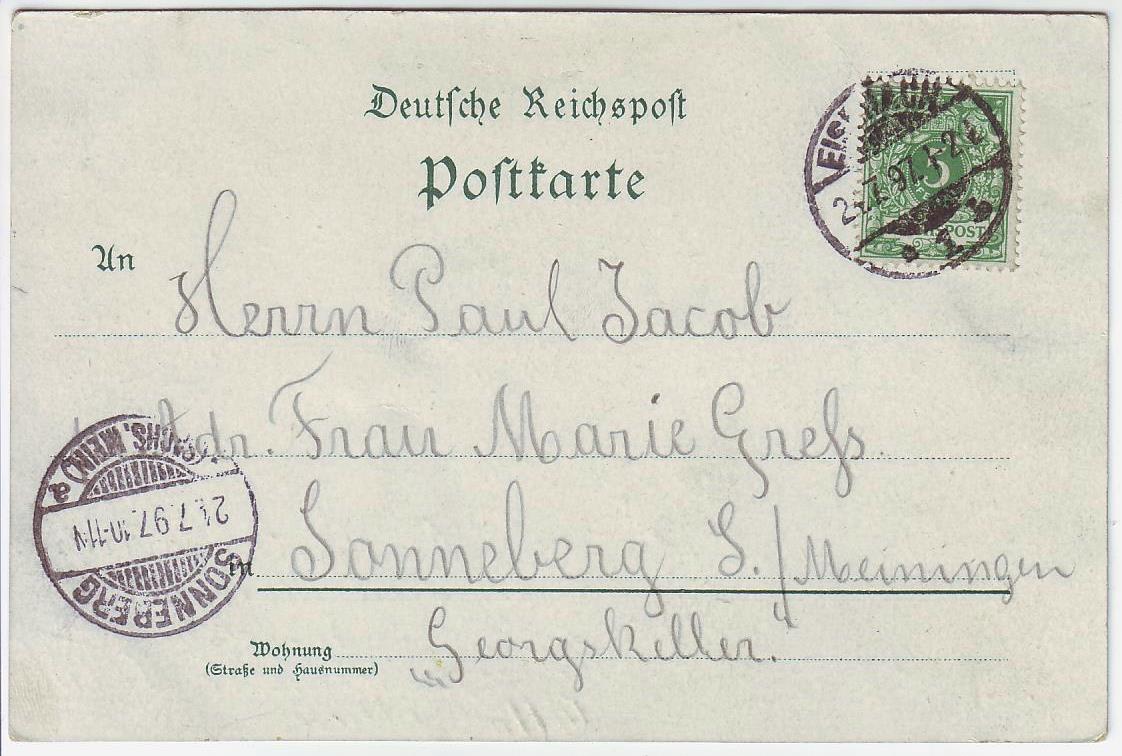 Deutsche Reichspost
Postkarte
5
POST
EISENACH
7.97. 1-2 N
1 b
An
Herrn Paul Jacob
Adr. Frau Marie Greſs.
in Sonneberg S./Meiningen
Wohnung
(Straße und Hausnummer)
„Georgskeller.
SONNEBERG
(SACHS. MEIN.)
21.7.97. 10-11 N
a